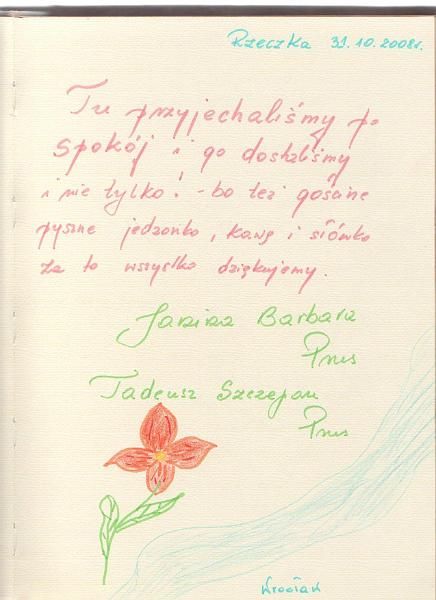 Rzeczka 31.10.2008r.
Tu przyjechaliśmy po
spokój i go dostaliśmy
i nie tylko! - bo też gościne
pyszne jedzonko, kawę i słówko
za to wszystko dziękujemy.
Janina Barbara
Prus
Tadeusz Szczepan
Prus
Wrocław